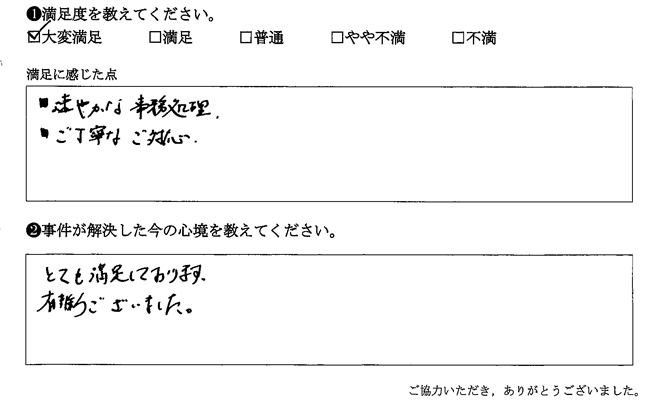 ❶満足度を教えてください。
☑大変満足 □満足 □普通 □やや不満 □不満
満足に感じた点
▪速やかな事務処理.
▪ご丁寧なご対応.
❷事件が解決した今の心境を教えてください。
とても満足しております.
有難うございました。
ご協力いただき，ありがとうございました。